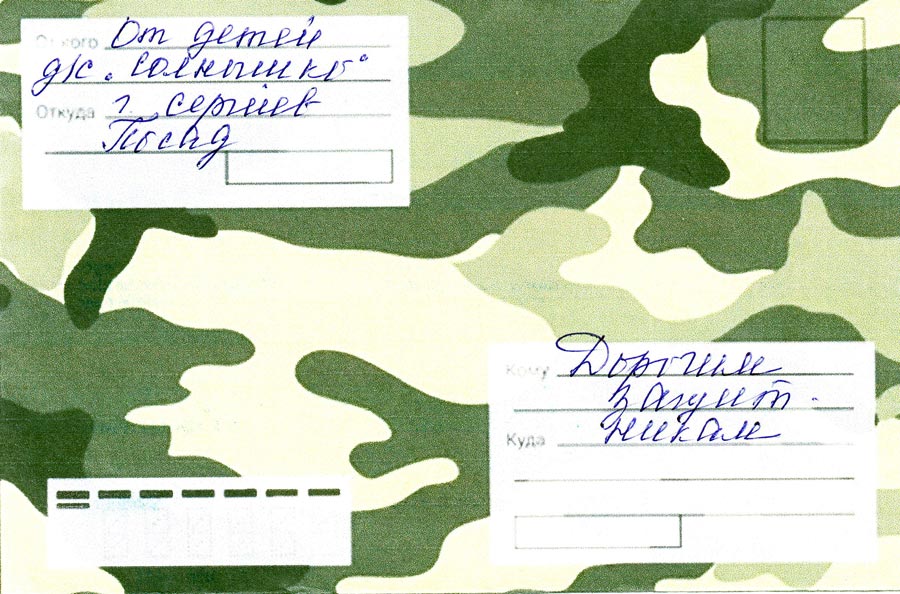 От кого От детей
д/с "Солнышко"
Откуда г. Сергиев
Посад
Кому Дорогим
защит-
Куда никам